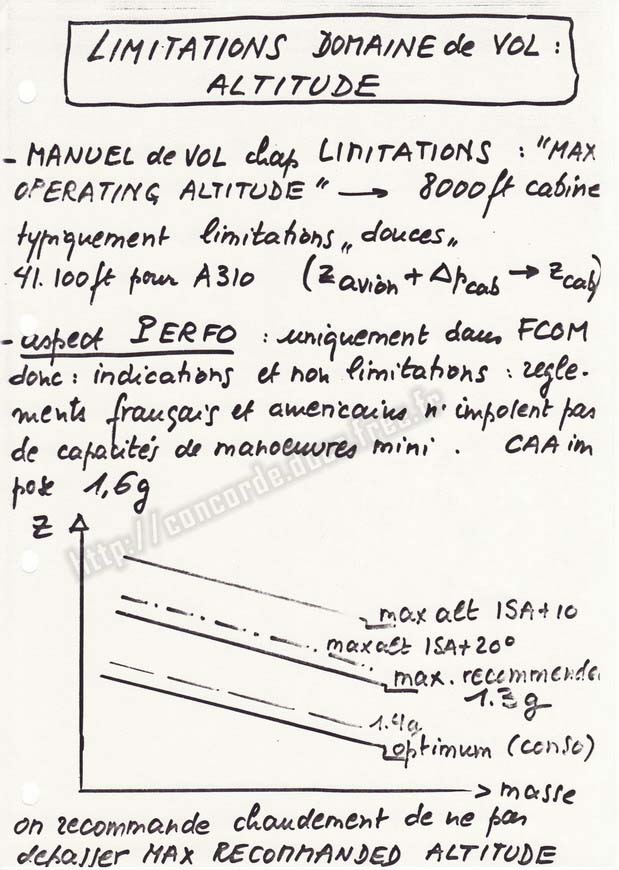 LIMITATIONS DOMAINE de VOL :
ALTITUDE
- MANUEL de VOL chap LIMITATIONS : "MAX
OPERATING ALTITUDE" → 8000ft cabine
typiquement limitations „douces„
41.100ft pour A310 (Zavion + Δpcab → Zcab)
- aspect PERFO : uniquement dans FCOM
donc : indications et non limitations : regle-
ments français et americains n'imposent pas
de capacités de manoeuvres mini . CAA im
pose 1,6g
http://concorde.dom.free.fr
Z
max alt ISA+10
max alt ISA+20°
max. recommende
1.3g
1.4g
optimum (conso)
masse
on recommande chaudement de ne pas
depasser MAX RECOMMANDED ALTITUDE